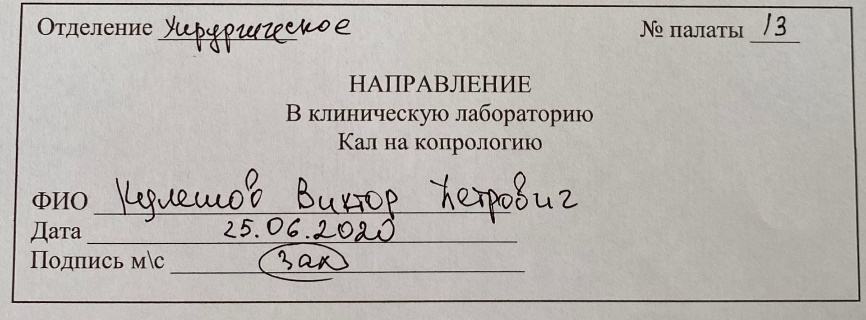 Отделение Хирургическое № палаты 13
НАПРАВЛЕНИЕ
В клиническую лабораторию
Кал на копрологию
ФИО Кулешов Виктор Петрович
Дата 25.06.2020
Подпись м\с Зак